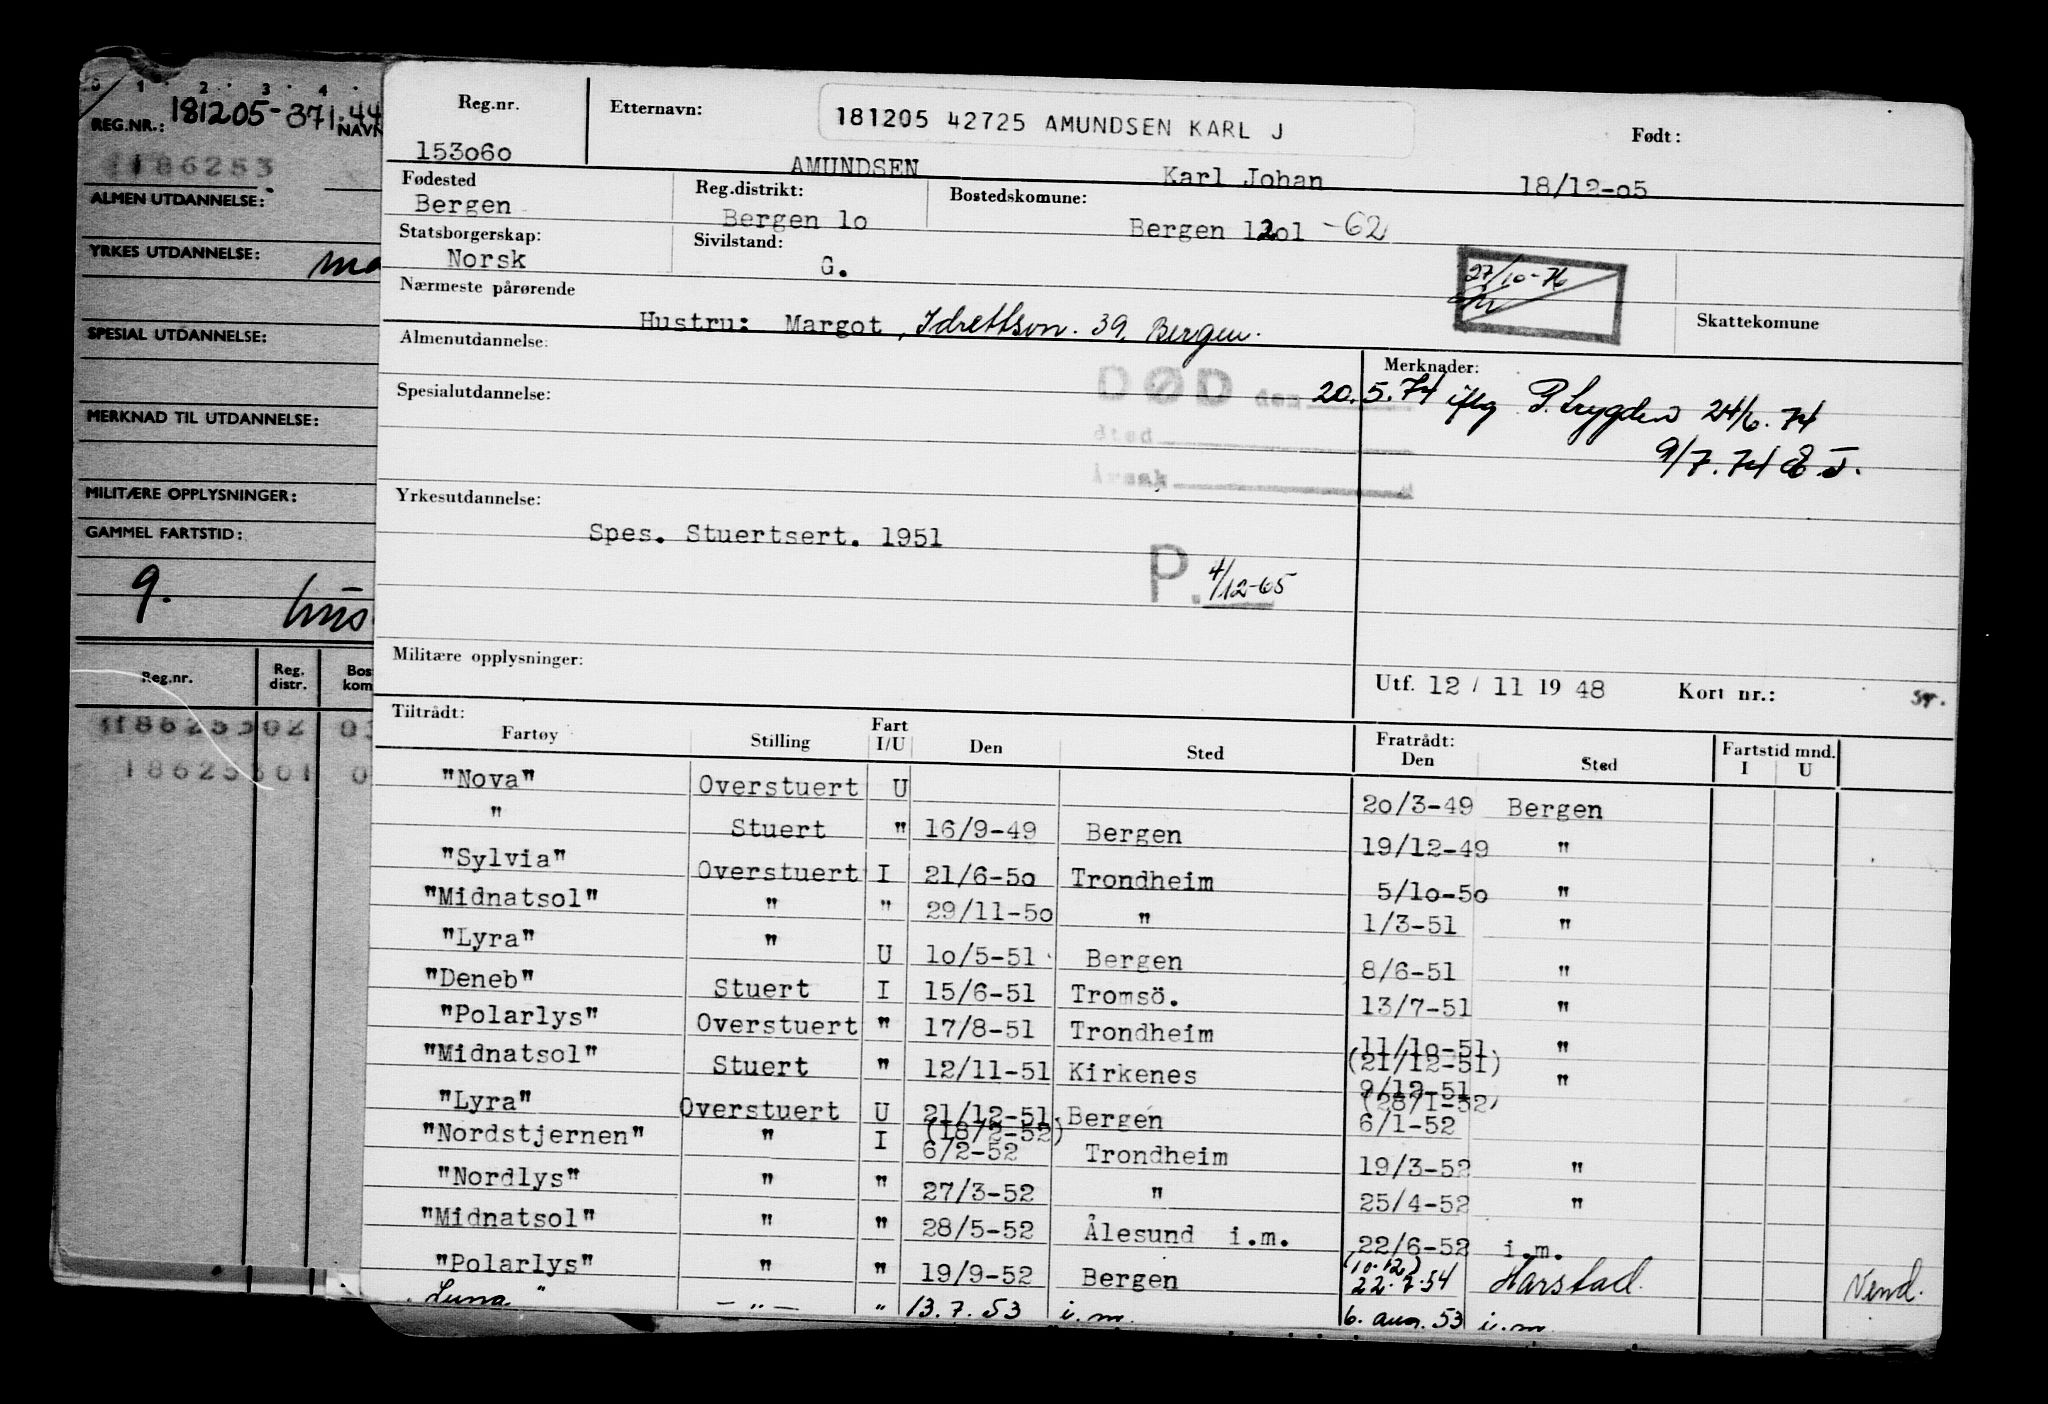 0 1 2 3 4
REG.NR.: 181205-371.44 NAVN
1186253
ALMEN UTDANNELSE:
YRKES UTDANNELSE:
SPESIAL UTDANNELSE:
MERKNAD TIL UTDANNELSE:
MILITÆRE OPPLYSNINGER:
GAMMEL FARTSTID:
9.
Reg.nr. Reg. distr. Bos kom
Reg.nr. Etternavn: 181205 42725 AMUNDSEN KARL J Født:
153060 AMUNDSEN Karl Johan 18/12-05
Fødested Reg.distrikt: Bostedskomune:
Bergen Bergen 10 Bergen 1201 -62
Statsborgerskap: Sivilstand:
Norsk G. 27/10-76
Nærmeste pårørende Skattekomune
Hustru: Margot, Idrettsvn. 39, Bergen.
Almenutdannelse: Merknader:
DØD den 20.5.74 iflg P. trygden 24/6.74
Spesialutdannelse:
Sted 9/7.74 E J.
Årsak
Yrkesutdannelse:
Spes. Stuertsert. 1951
P. 4/12-65
Militære opplysninger: Utf. 12 / 11 19 48 Kort nr.:
Tiltrådt: Fratrådt: Fartstid mnd.
Fartøy Stilling Fart I/U Den Sted Den Sted I U
"Nova" Overstuert U 20/3-49 Bergen
" Stuert " 16/9-49 Bergen 19/12-49 "
"Sylvia" Overstuert I 21/6-50 Trondheim 5/10-50 "
"Midnatsol" " " 29/11-50 " 1/3-51 "
"Lyra" " U 10/5-51 Bergen 8/6-51 "
"Deneb" Stuert I 15/6-51 Tromsö. 13/7-51 "
"Polarlys" Overstuert " 17/8-51 Trondheim 11/10-51 "
(21/12-51)
"Midnatsol" Stuert " 12/11-51 Kirkenes 9/12-51 "
(28/1-52)
"Lyra" Overstuert U 21/12-51 Bergen 6/1-52
(18/2-52)
"Nordstjernen" " I 6/2-52 Trondheim 19/3-52 "
"Nordlys" " " 27/3-52 " 25/4-52 "
"Midnatsol" " " 28/5-52 Ålesund i.m. 22/6-52 i.m.
(10.12)
"Polarlys" " " 19/9-52 Bergen 22.2.54 Harstad. Vend.
Luna " - " - " 13.7.53 i.m. 6. aug. 53 i.m.